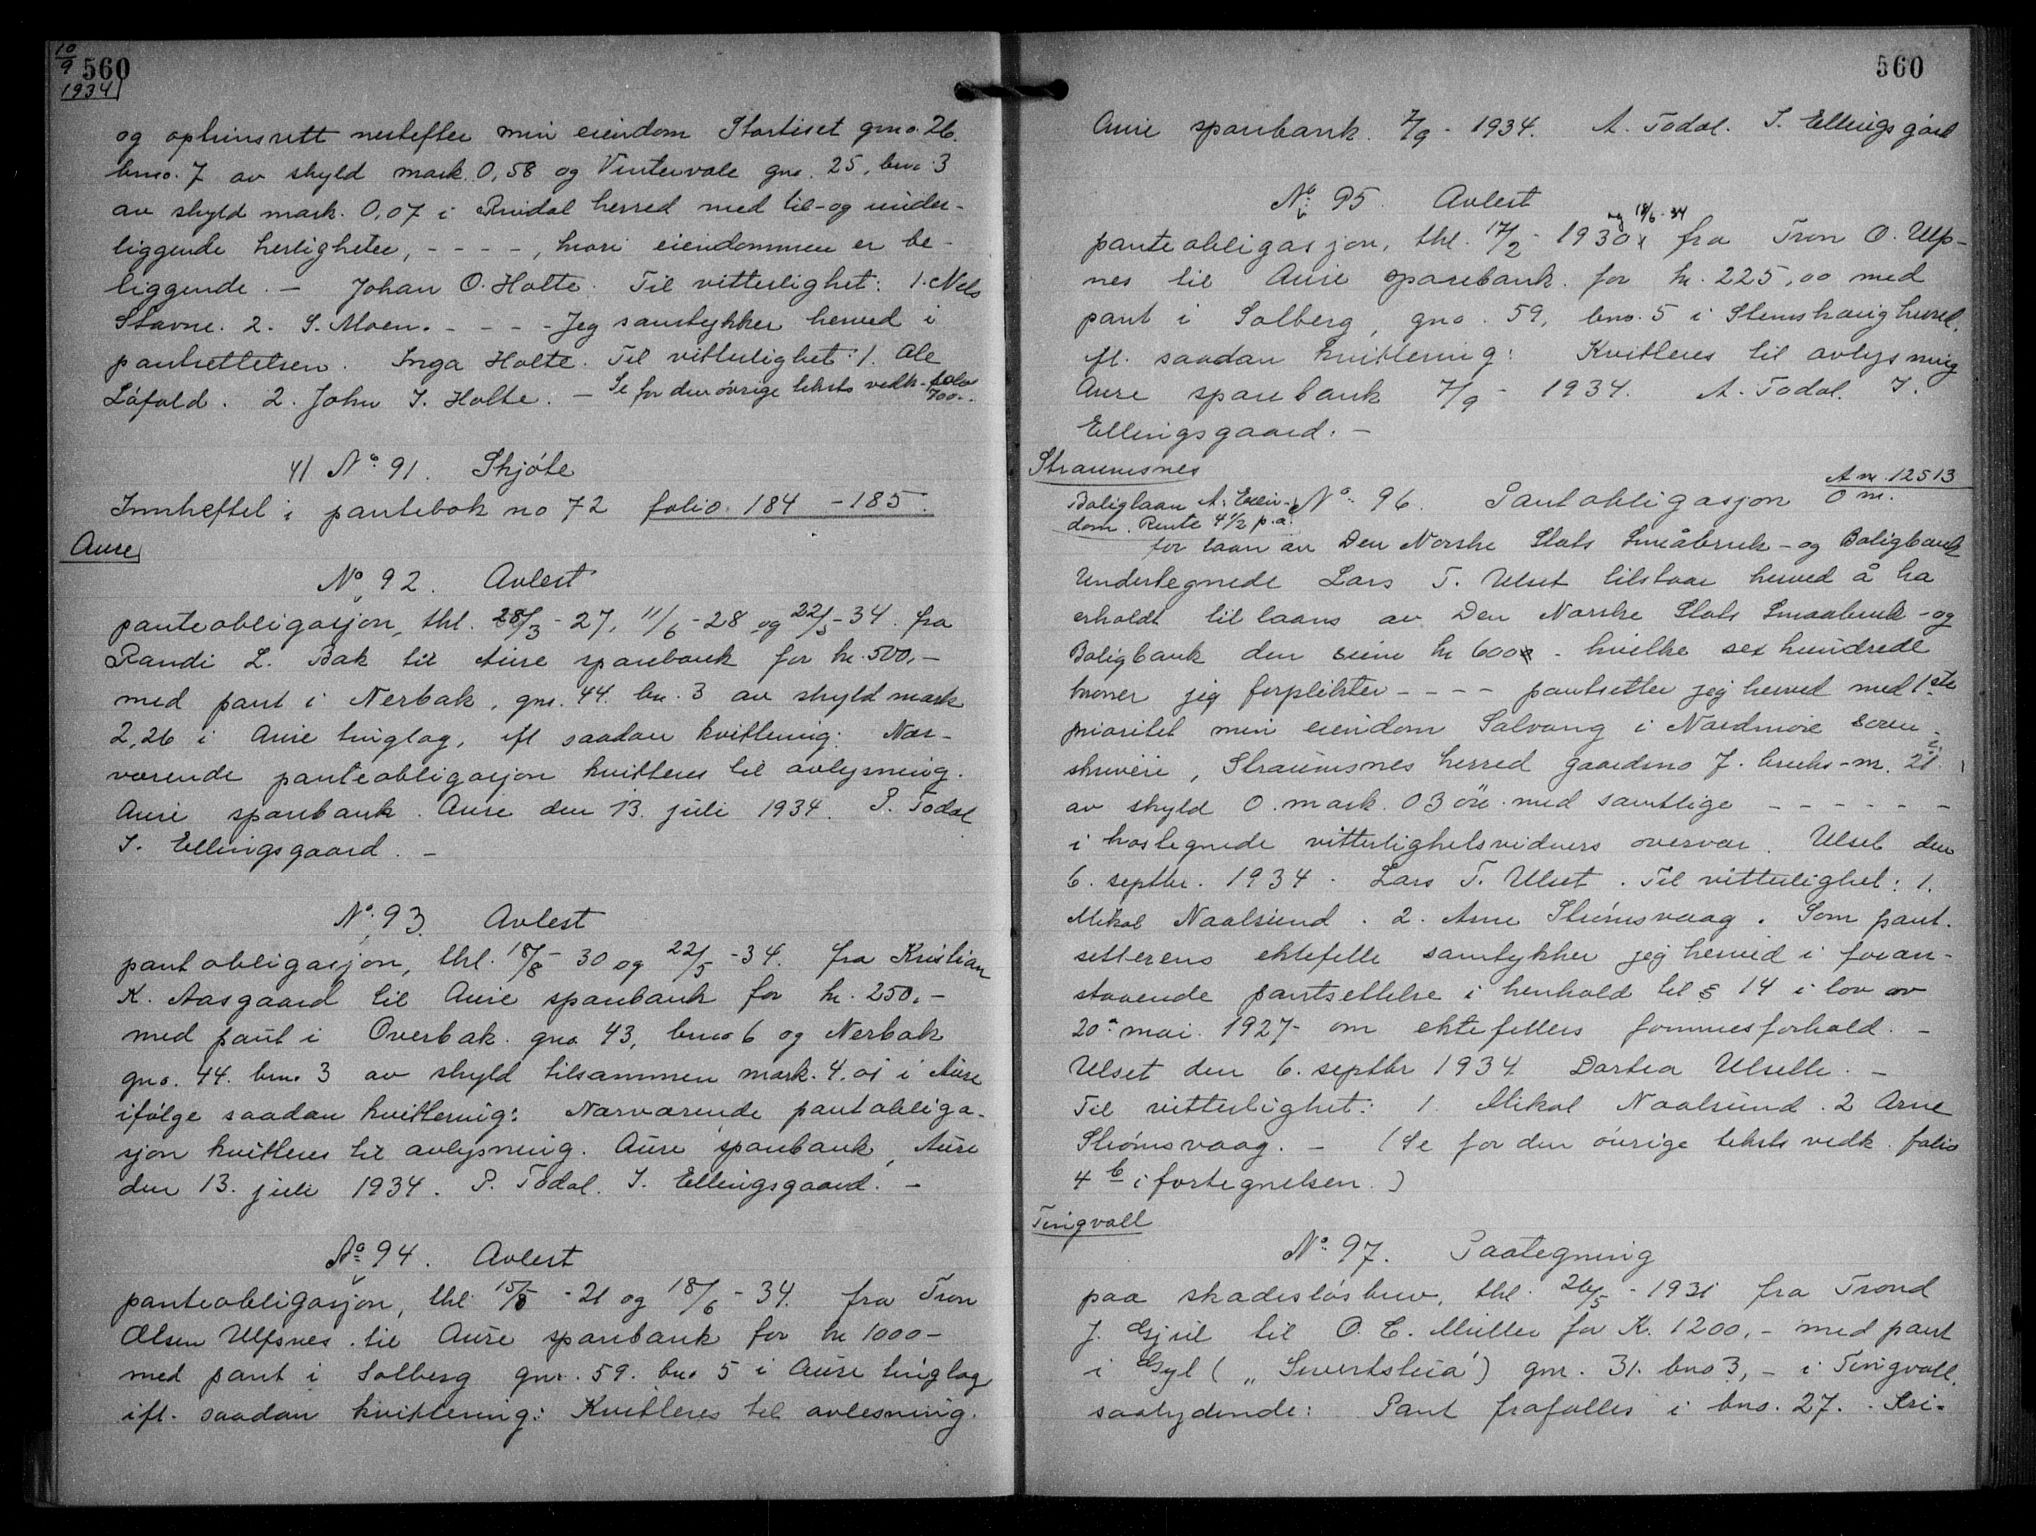 10/9
1934
560
og optrinsrett nestefter min eiendom Stortiset gno. 26.
bno. 7 av skyld mark 0,58 og Vintervole gno. 25, bno. 3
av skyld mark. 0,07 i Rindal herred med til- og under-
liggende herligheter, - - - -, hvori eiendommen er be-
liggende. - Johan O. Holte. Til vitterlighet: 1. Nels
Stavne. 2. S. Moen. - - - - Jeg samtykker herved i
pantsettelsen. Inga Holte. Til vitterlighet: 1. Ole
Løfald. 2. John J. Holte. - Se for den øvrige teksts vedk. folio 700.
41 No 91. Skjøte
Innheftet i pantebok no 72 folio. 184 - 185.
Aure
No 92. Avlest
panteobligasjon, thl. 28/3 - 27, 11/6 - 28 og 22/5 - 34. fra
Randi L. Bak til Aure sparebank for kr. 500,-
med pant i Nerbak, gno. 44. bn. 3 av skyld mark
2,26 i Aure tinglag, ifl saadan kvittering: Nær-
værende panteobligasjon kvitteres til avlysning.
Aure sparebank. Aure den 13. juli 1934. P. Todal
I. Ellingsgaard. -
No 93. Avlest
pantobligasjon, thl. 18/8 - 30 og 22/5 - 34. fra Kristian
K. Aasgaard til Aure sparebank for kr. 250,-
med pant i Overbak. gno. 43, bno 6 og Nerbak
gno. 44. bno 3 av skyld tilsammen mark. 4,01 i Aure
ifølge saadan kvittering: Nærværende pantobliga-
sjon kvitteres til avlysning. Aure sparebank, Aure
den 13. juli 1934. P. Todal. I. Ellingsgaard. -
No 94. Avlest
panteobligasjon, thl. 15/8 - 21 og 18/6 - 34. fra Tron
Olsen Ulfsnes til Aure sparebank for kr 1000 -
med pant i Solberg gno. 59. bno 5 i Aure tinglag
ifl. saadan kvittering: Kvitteres til avlesning.
560
Aure sparebank. 7/9 - 1934. A. Todal. I. Ellingsgård
No 95. Avlest
og 18/6-34
panteobligasjon, thl. 17/2 - 1930 x fra Tron O. Ulp-
nes til Aure sparebank for kr. 225,00 med
pant i Solberg, gno. 59, bno. 5 i Stemshaug herred.
ifl. saadan kvittering: Kvitteres til avlysning
Aure sparebank 7/9 - 1934. A. Todal. I.
Ellingsgaard. -
Straumsnes
Boliglaan A. Eien-
dom. Rente 4 1/2 p.a.
No 96. Pantobligasjon
A nr. 12513
O nr.
for laan av Den Norske Stats Småbruk- og Boligbank
Undertegnede Lars T. Ulset tilstaar herved å ha
erholdt tillaans av Den Norske Stats Smaabruk- og
Boligbank den sum kr 600 - hvilke sex hundrede
kroner jeg forplikter - - - - pantsetter jeg herved med 1ste
prioritet min eiendom Solvang i Nordmøre soren-
skriveri, Straumsnes herred gaardsno 7. bruks-nr. 21.
av skyld 0. mark 03 øre med samtlige - - - - - -
i hostegnede vitterlighetsvidners overvær. Ulset den
6. septbr. 1934. Lars T. Ulset. Til vitterlighet: 1.
Mikal Naalsund. 2. Arne Strømsvaag. Som pant-
setterens ektefelle samtykker jeg herved i foran-
staaende pantsettelse i henhold til § 14 i lov av
20. mai. 1927 om ektefellers formuesforhold. -
Ulset den 6. septbr 1934 Dortea Ulsetts. -
Til vitterlighet: 1. Mikal Naalsund. 2 Arne
Strømsvaag. - (Se for den øvrige teksts vedk. folio
4 b i fortegnelsen.)
Tingvoll
No 97. Paategning
paa skadesløsbrev, thl. 26/5 - 1931 fra Trond
J. Gjül til O. C. Müller for K. 1200,- med pant
i Gyl („Sivertslia") gnr. 31. bno 3, - i Tingvoll,
saalydende: Pant frafalles i bno. 27. Kri-